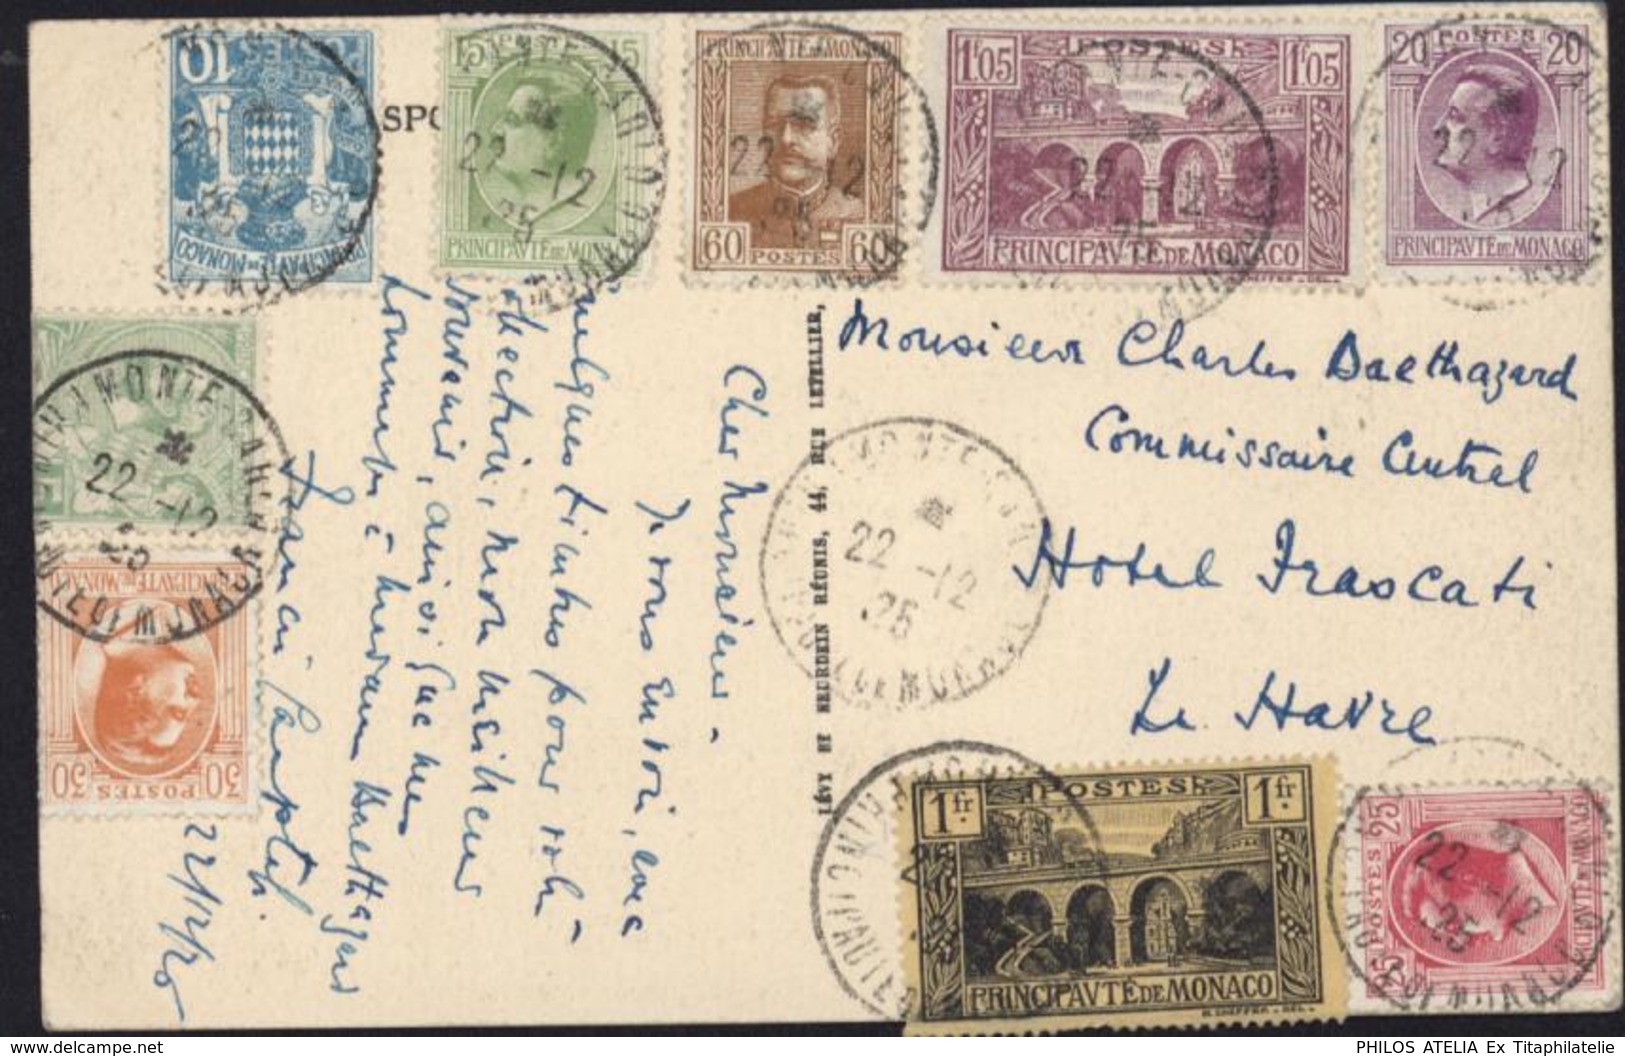 10
POSTES
PRINCIPAVTE DE MONACO
15 15
PRINCIPAVTE DE MONACO
PRINCIPAVTE DE MONACO
60 60
POSTES
POSTES
1f05 1f05
PRINCIPAVTE DE MONACO
20 20
POSTES
PRINCIPAVTE DE MONACO
SPO
MONTE-CARLO
22 -12
25
PRINCIPAUTÉ DE MONACO
PRINCIPAVTE DE MONACO
30 30
POSTES
Cher Monsieur -
Je vous envoi, avec
quelques timbres pour votre
collection, mon meilleur
souvenir, ainsi que mes
hommages à Madame Balthazard
22/12/25
LÉVY ET NEURDEIN RÉUNIS, 44, RUE LETELLIER,
Monsieur Charles Balthazard
Commissaire Central
Hotel Frascati
Le Havre
POSTES
1fr. 1fr.
PRINCIPAVTÉ DE MONACO
25 25
POSTES
PRINCIPAVTE DE MONACO
PHILOS ATELIA Ex Titaphilatelie
www.delcampe.net